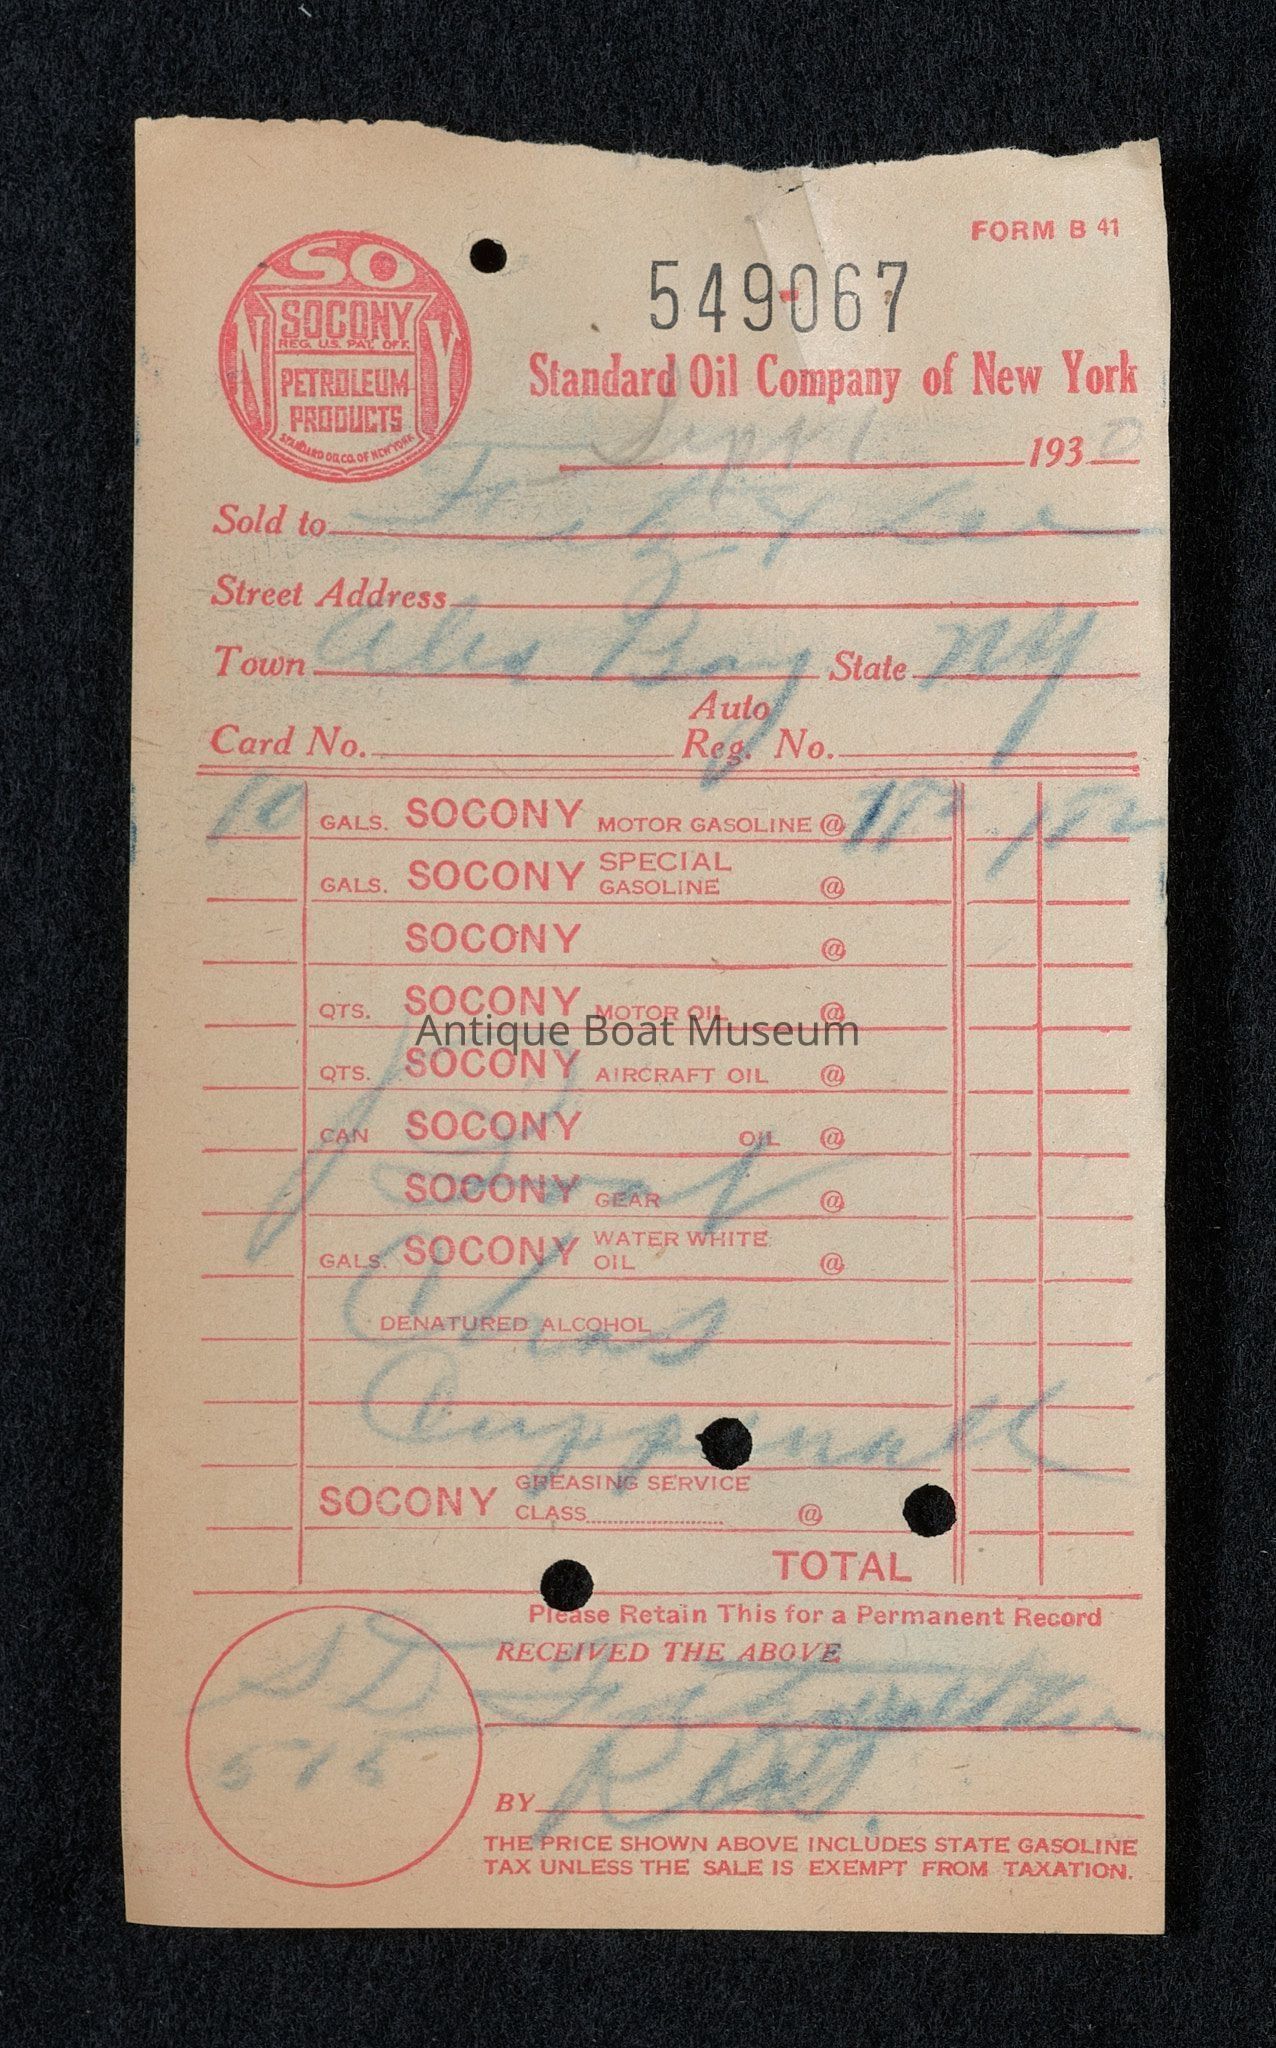 FORM B 41
SO
N Y
SOCONY
REG. U.S. PAT. OFF.
PETROLEUM
PRODUCTS
STANDARD OIL CO. OF NEW YORK
549067
Standard Oil Company of New York
Sept 1 1930
Sold to
Street Address
Town Alex Bay State NY
Auto
Card No. Reg. No.
10 GALS. SOCONY MOTOR GASOLINE @ 18² 1 82
GALS. SOCONY SPECIAL GASOLINE @
SOCONY @
QTS. SOCONY MOTOR OIL @
Antique Boat Museum
QTS. SOCONY AIRCRAFT OIL @
CAN SOCONY OIL @
Boat
SOCONY GEAR @
GALS. SOCONY WATER WHITE OIL @
Chas
DENATURED ALCOHOL
SOCONY GREASING SERVICE
CLASS @
TOTAL
Please Retain This for a Permanent Record
RECEIVED THE ABOVE
S D
515
BY
THE PRICE SHOWN ABOVE INCLUDES STATE GASOLINE
TAX UNLESS THE SALE IS EXEMPT FROM TAXATION.